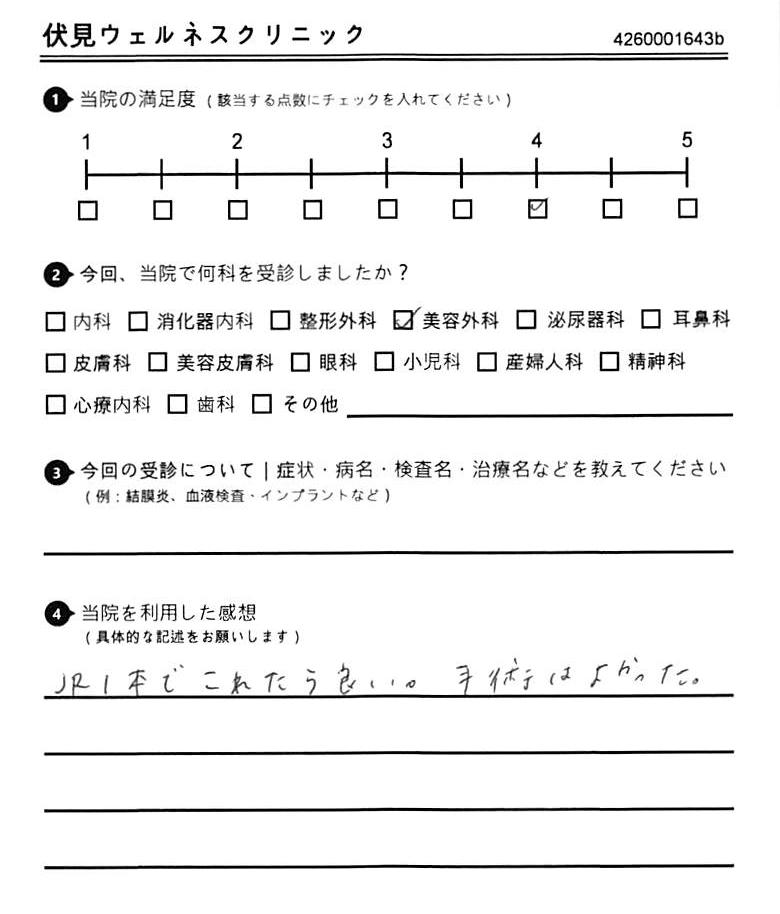 伏見ウェルネスクリニック 4260001643b
1 当院の満足度 (該当する点数にチェックを入れてください)
1 2 3 4 5
2 今回、当院で何科を受診しましたか?
内科 消化器内科 整形外科 美容外科 泌尿器科 耳鼻科
皮膚科 美容皮膚科 眼科 小児科 産婦人科 精神科
心療内科 歯科 その他
3 今回の受診について|症状・病名・検査名・治療名などを教えてください
(例:結膜炎、血液検査・インプラントなど)
4 当院を利用した感想
(具体的な記述をお願いします)
JR1本でこれたら良い。手術はよかった。